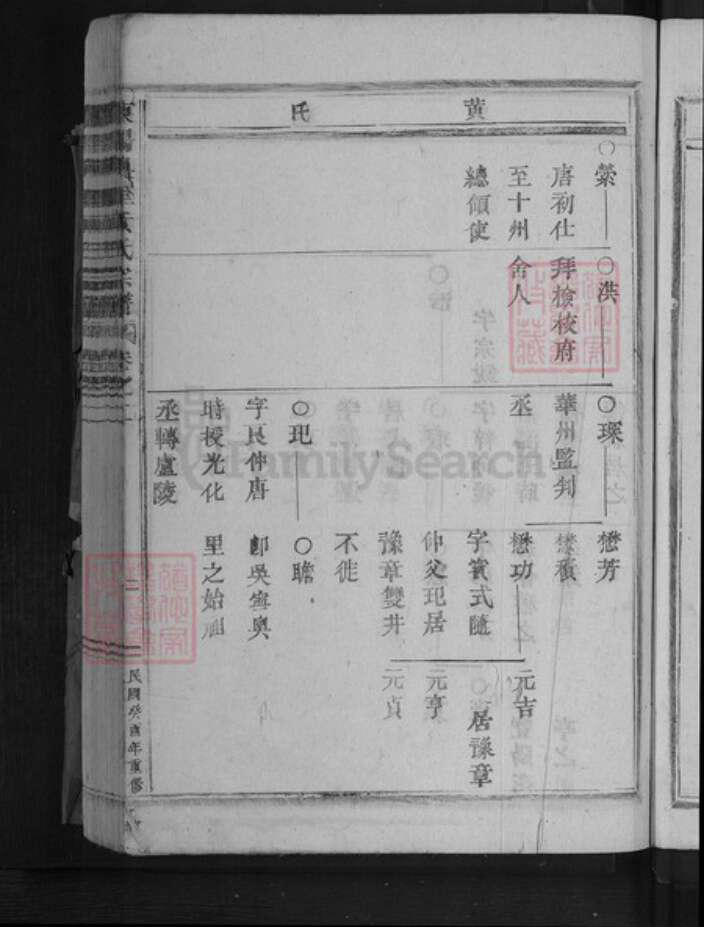 黄氏
○縈
唐初仕
至十州
總領使
○洪
拜檢校府
舍人
○琛
華州監判
丞
○玘
字良仲唐
時授光化
丞轉廬陵
懋芳
懋積
懋功
字賓式隨
仲父玘居
豫章雙井
不徙
○瞻
即吳寧奧
里之始祖
元吉
居豫章
元亨
元貞
黄氏宗譜
卷之
民國癸酉年重修
FamilySearch